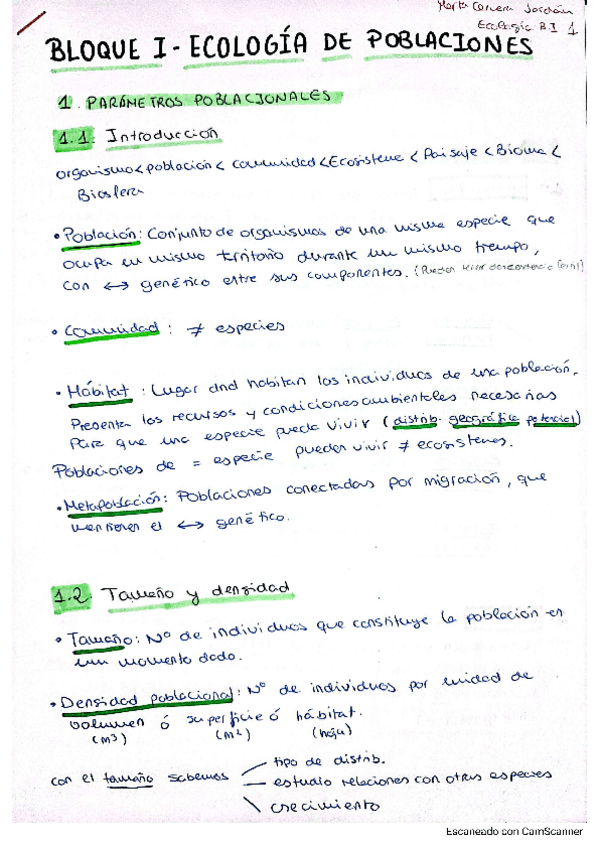 Marta Cervera Jordán
Ecología B.I 1
BLOQUE I - ECOLOGÍA DE POBLACIONES
1. PARÁMETROS POBLACIONALES
1.1. Introduccion
organismo < población < comunidad < Ecosistema < Paisaje < Bioma <
Biosfera
• Población: Conjunto de organismos de una misma especie que
ocupa un mismo territorio durante un mismo tiempo,
con ↔ genético entre sus componentes. (Pueden tener descendencia
• Comunidad: ≠ especies
• Hábitat: Lugar dnd habitan los individuos de una población.
Presenta los recursos y condiciones ambientales necesarias
para que una especie pueda vivir (distrib. geográfica potencial)
Poblaciones de = especie pueden vivir ≠ ecosistemas.
• Metapoblación: Poblaciones conectadas por migración, que
mantienen el ↔ genético.
1.2. Tamaño y densidad
• Tamaño: Nº de individuos que constituye la población en
un momento dado.
• Densidad poblacional: Nº de individuos por unidad de
volumen ó superficie ó hábitat.
(m³) (m²) (hoja)
tipo de distrib.
con el tamaño sabemos — estudio relaciones con otras especies
crecimiento
Escaneado con CamScanner